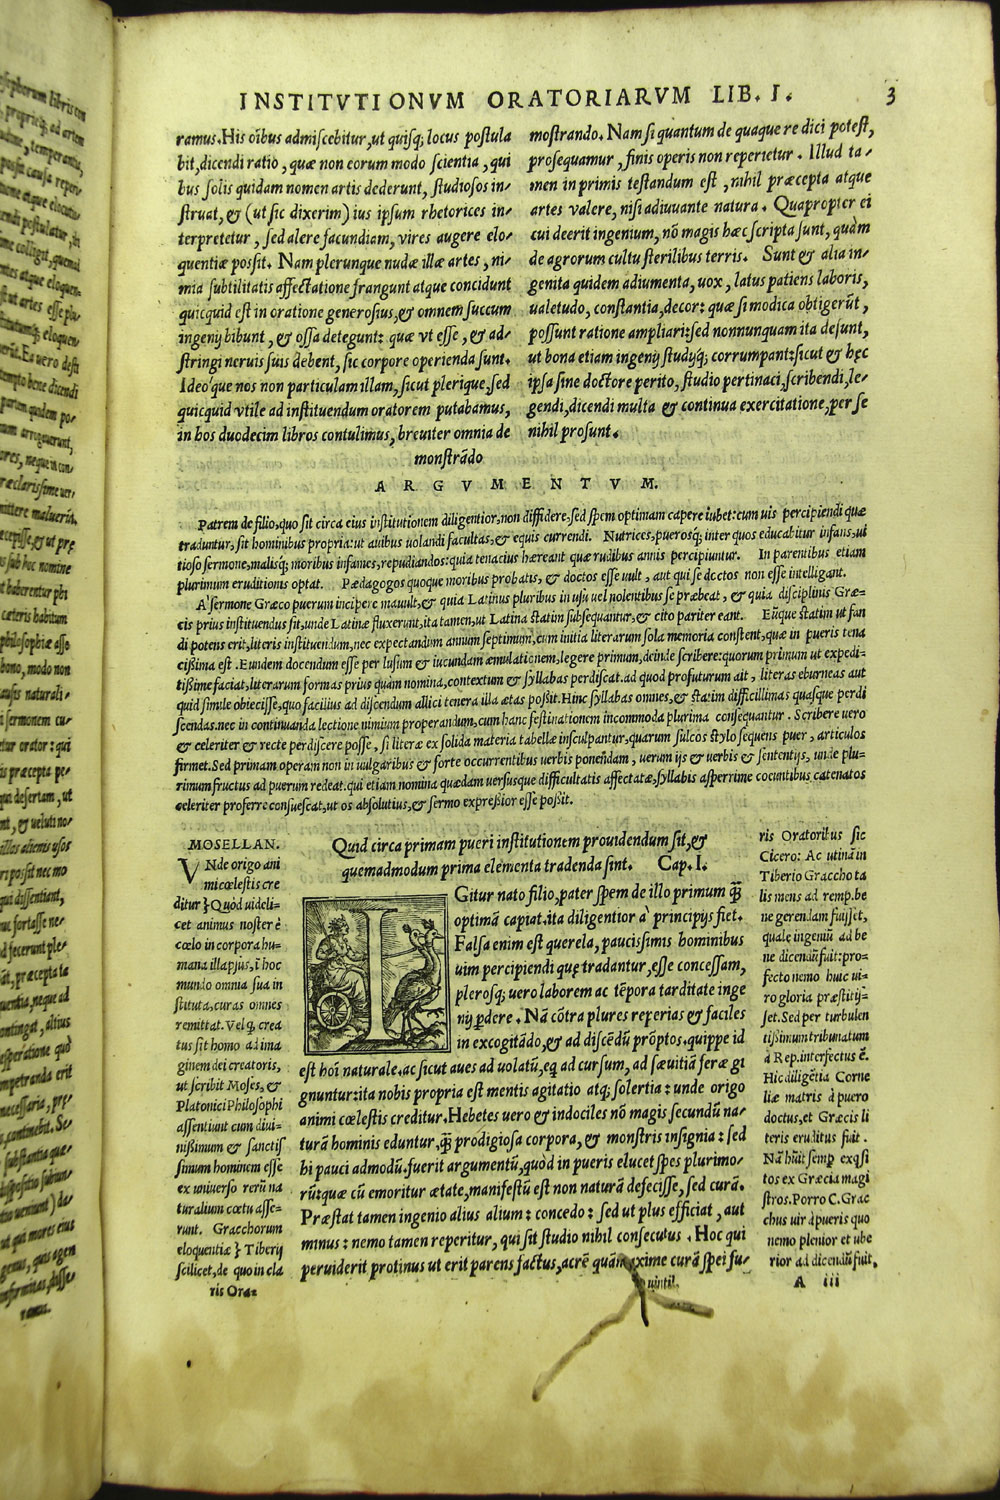 INSTITVTIONVM ORATORIARVM LIB. I. 3
ramus. His oībus admiscebitur, ut quisq; locus postula
bit, dicendi ratio, quæ non eorum modo scientia, qui
bus solis quidam nomen artis dederunt, studiosos in-
struat, & (ut sic dixerim) ius ipsum rhetorices in-
terpretetur, sed alere facundiam, vires augere elo-
quentiæ possit. Nam plerunque nudæ illæ artes, ni-
mia subtilitatis affectatione frangunt atque concidunt
quicquid est in oratione generosius, & omnem succum
ingenij bibunt, & ossa detegunt: quæ vt esse, & ad-
stringi neruis suis debent, sic corpore operienda sunt.
Ideo'que nos non particulam illam, sicut plerique, sed
quicquid vtile ad instituendum oratorem putabamus,
in hos duodecim libros contulimus, breuiter omnia de
monstrādo
mostrando. Nam si quantum de quaque re dici potest,
prosequamur, finis operis non reperietur. Illud ta-
men in primis testandum est, nihil præcepta atque
artes valere, nisi adiuuante natura. Quapropter ei
cui deerit ingenium, nō magis hæc scripta sunt, quàm
de agrorum cultu sterilibus terris. Sunt & alia in-
genita quidem adiumenta, uox, latus patiens laboris,
ualetudo, constantia, decor: quæ si modica obtigerūt,
possunt ratione ampliari: sed nonnunquam ita desunt,
ut bona etiam ingenij studijq; corrumpant: sicut & hęc
ipsa sine doctore perito, studio pertinaci, scribendi, le-
gendi, dicendi multa & continua exercitatione, per se
nihil prosunt.
ARGVMENTVM.
Patrem de filio, quo sit circa eius institutionem diligentior, non diffidere, sed spem optimam capere iubet: cum uis percipiendi quæ
traduntur, sit hominibus propria: ut auibus uolandi facultas, & equis currendi. Nutrices, puerosq; inter quos educabitur infans, ui
tioso sermone, malisq; moribus infames, repudiandos: quia tenacius hæreant quæ rudibus annis percipiuntur. In parentibus etiam
plurimum eruditionis optat. Pædagogos quoque moribus probatis, & doctos esse uult, aut qui se doctos non esse intelligant.
A' sermone Græco puerum incipere mauult, & quia Latinus pluribus in usu uel nolentibus se præbeat, & quia disciplinis Græ-
cis prius instituendus sit, unde Latinæ fluxerunt, ita tamen, ut Latina statim subsequantur, & cito pariter eant. Eūque statim ut fan
di potens erit, literis instituendum, nec expectandum annum septimum, cum initia literarum sola memoria constent, quæ in pueris tena
cißima est. Eundem docendum esse per lusum & iucundam æmulationem, legere primum, deinde scribere: quorum primum ut expedi-
tißime faciat, literarum formas prius quàm nomina, contextum & syllabas perdiscat. ad quod profuturum ait, literas eburneas aut
quid simile obiecisse, quo facilius ad discendum allici tenera illa ætas poßit. Hinc syllabas omnes, & statim difficillimas quasque perdi
scendas. nec in continuanda lectione nimium properandum, cum hanc festinationem incommoda plurima consequantur. Scribere uero
& celeriter & recte perdiscere posse, si literæ ex solida materia tabellæ insculpantur, quarum sulcos stylo sequens puer, articulos
firmet. Sed primam operam non in uulgaribus & forte occurrentibus uerbis ponendam, uerum ijs & uerbis & sententijs, unde plu-
rimum fructus ad puerum redeat. qui etiam nomina quædam uersusque difficultatis affectatæ, syllabis asperrime coeuntibus catenatos
celeriter proferre consuescat, ut os absolutius, & sermo expreßior esse poßit.
MOSELLAN.
VNde origo ani
mi cœlestis cre
ditur} Quòd uideli-
cet animus noster è
cœlo in corpora hu-
mana illapsus, ī hoc
mundo omnia sua in
stituta, curas omnes
remittat. Vel q, crea
tus sit homo ad ima
ginem dei creatoris,
ut scribit Moses, &
Platonici Philosophi
assentiunt cum diui-
nißimum & sanctiß
simum hominem esse
ex uniuerso rerū na
turalium cœtu asse-
runt. Gracchorum
eloquentiæ} Tiberij
scilicet, de quo in cla
ris Ora-
Quid circa primam pueri institutionem prouidendum sit, &
quemadmodum prima elementa tradenda sint. Cap. I.
IGitur nato filio, pater spem de illo primum q̃̃
optimā capiat. ita diligentior à principijs fiet.
Falsa enim est querela, paucissimis hominibus
uim percipiendi quę tradantur, esse concessam,
plerosq; uero laborem ac tēpora tarditate inge
nij pdere. Nā cōtra plures reperias & faciles
in excogitādo, & ad discēdū prōptos. quippe id
est hoī naturale. ac sicut aues ad uolatū, eq ad cursum, ad sæuitiā feræ gi
gnuntur: ita nobis propria est mentis agitatio atq; solertia: unde origo
animi cœlestis creditur. Hebetes uero & indociles nō magis secundū na-
turā hominis eduntur, q̃̃ prodigiosa corpora, & monstris insignia: sed
hi pauci admodū. fuerit argumentū, quòd in pueris elucet spes plurimo-
rū: quæ cū emoritur ætate, manifestū est non naturā defecisse, sed curā.
Præstat tamen ingenio alius alium: concedo: sed ut plus efficiat, aut
minus: nemo tamen reperitur, qui sit studio nihil consecutus. Hoc qui
peruiderit protinus ut erit parens factus, acrē quàm xime curā spei fu-
uintil.
ris Oratoribus sic
Cicero: Ac utinā in
Tiberio Graccho ta
lis mens ad remp. be
ne gerendam fuisset,
quale ingeniū ad be
ne dicendū fuit: pro-
fecto nemo huic ui-
ro gloria præstitis-
set. Sed per turbulen
tißimum tribunatum
à Rep. interfectus ē.
Hic diligētia Corne
liæ matris à puero
doctus, et Græcis li
teris eruditus fuit.
Nā hūit semp exqsi
tos ex Græcia magi
stros. Porro C. Grac
chus uir à pueris quo
nemo plenior et ube
rior ad dicendū fuit,
A iii